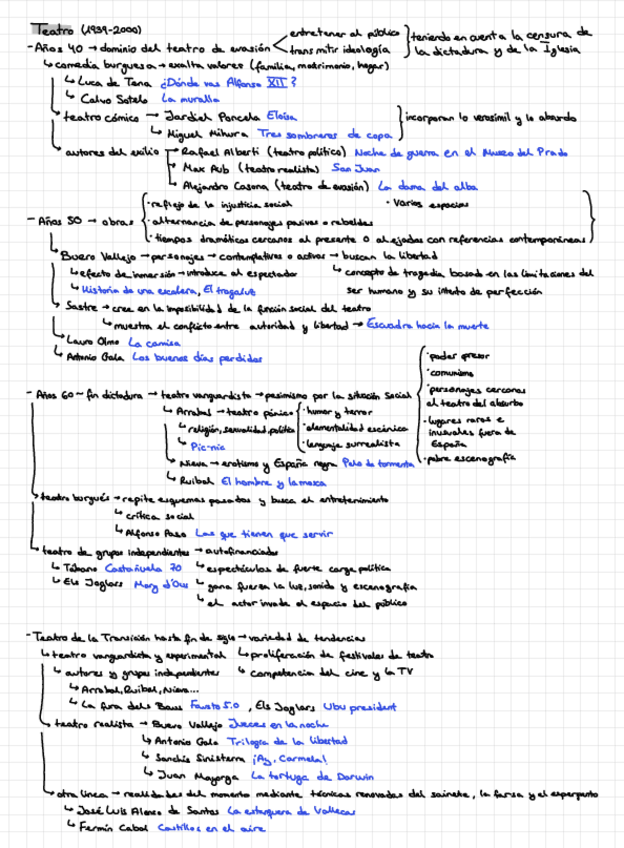 Teatro (1939-2000)
entretener al público
transmitir ideología
teniendo en cuenta la censura de
la dictadura y de la Iglesia
- Años 40 → dominio del teatro de evasión
↳ comedia burguesa → exalta valores (familia, matrimonio, hogar)
↳ Luca de Tena ¿Dónde vas Alfonso XII?
↳ Calvo Sotelo La muralla
↳ teatro cómico → Jardiel Poncela Eloísa
↳ Miguel Mihura Tres sombreros de copa
incorporan lo verosímil y lo absurdo
↳ autores del exilio → Rafael Alberti (teatro político) Noche de guerra en el Museo del Prado
↳ Max Aub (teatro realista) San Juan
↳ Alejandro Casona (teatro de evasión) La dama del alba
- Años 50 → obras
· reflejo de la injusticia social
· Varios espacios
· alternancia de personajes pasivos o rebeldes
· tiempos dramáticos cercanos al presente o alejados con referencias contemporáneas
↳ Buero Vallejo → personajes → contemplativos o activos → buscan la libertad
↳ efecto de inmersión → introduce al espectador
↳ concepto de tragedia basado en las limitaciones del
ser humano y su intento de perfección
↳ Historia de una escalera, El tragaluz
↳ Sastre → cree en la imposibilidad de la función social del teatro
↳ muestra el conflicto entre autoridad y libertad → Escuadra hacia la muerte
↳ Lauro Olmo La camisa
↳ Antonio Gala Los buenos días perdidos
- Años 60 - fin dictadura → teatro vanguardista → pesimismo por la situación social
· poder opresor
· comunismo
· personajes cercanos
al teatro del absurbo
· lugares raros e
inusuales fuera de
España
· pobre escenografía
↳ Arrabal → teatro pánico
· humor y terror
· elementalidad escénica
· lenguaje surrealista
↳ religión, sexualidad, política
↳ Pic-nic
↳ Nieva → erotismo y España negra Pelo de tormenta
↳ Ruibal El hombre y la mosca
↳ teatro burgués → repite esquemas pasados y busca el entretenimiento
↳ crítica social
↳ Alfonso Paso Las que tienen que servir
↳ teatro de grupos independientes → autofinanciados
↳ Tábano Castañuela 70
↳ espectáculos de fuerte carga política
↳ Els Joglars Mary d'Ous
↳ gana fuerza la luz, sonido y escenografía
↳ el actor invade el espacio del público
- Teatro de la Transición hasta fin de siglo → variedad de tendencias
↳ teatro vanguardista y experimental
↳ proliferación de festivales de teatro
↳ autores y grupos independientes
↳ competencia del cine y la TV
↳ Arrabal, Ruibal, Nieva...
↳ La fura dels Baus Fausto 5.0, Els Joglars Ubu president
↳ teatro realista → Buero Vallejo Jueces en la noche
↳ Antonio Gala Trilogía de la libertad
↳ Sanchis Sinisterra ¡Ay, Carmela!
↳ Juan Mayorga La tortuga de Darwin
↳ otra línea → realidades del momento mediante técnicas renovadas del sainete, la farsa y el esperpento
↳ José Luis Alonso de Santos La estanquera de Vallecas
↳ Fermín Cabal Castillos en el aire